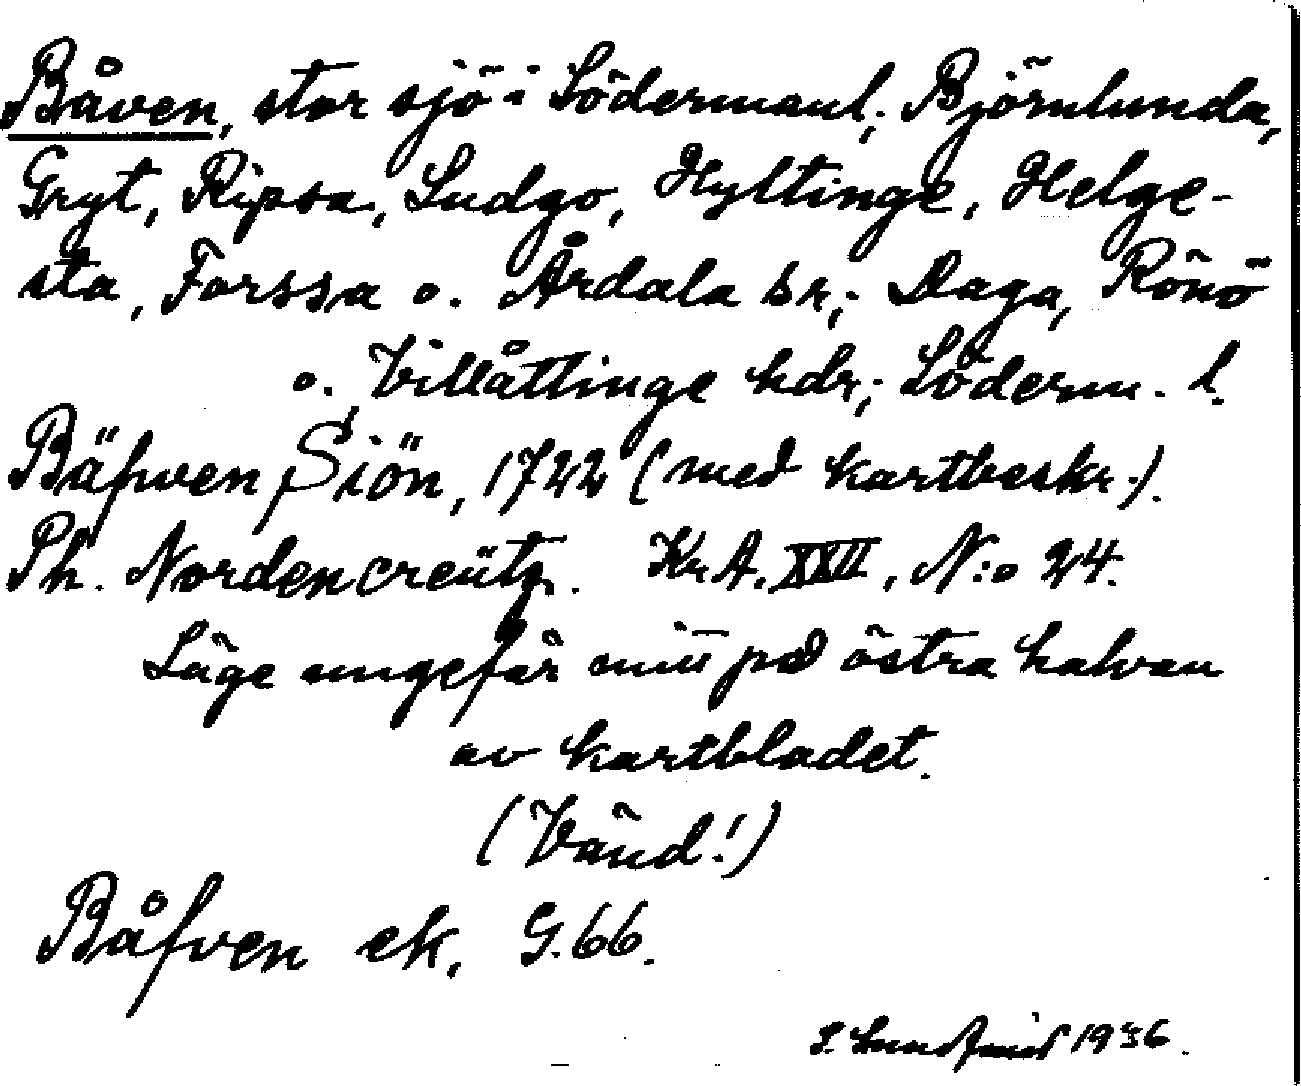 Båven, stor sjö i Södermanl; Björnlunda,
Gryt, Ripsa, Ludgo, Hyltinge, Helge-
sta, Forssa o. Årdala sn; Daga, Rönö
o. Villåttinge hdr; Söderm. l.
Bäfwen Siön, 1742 (med kartbeskr.).
Ph. Nordencreütz. Kr.A. XXII, N:o 24.
Läge ungefär mitt på östra halvan
av kartbladet.
(Vänd!)
Båfven ek. G. 66.
1936.